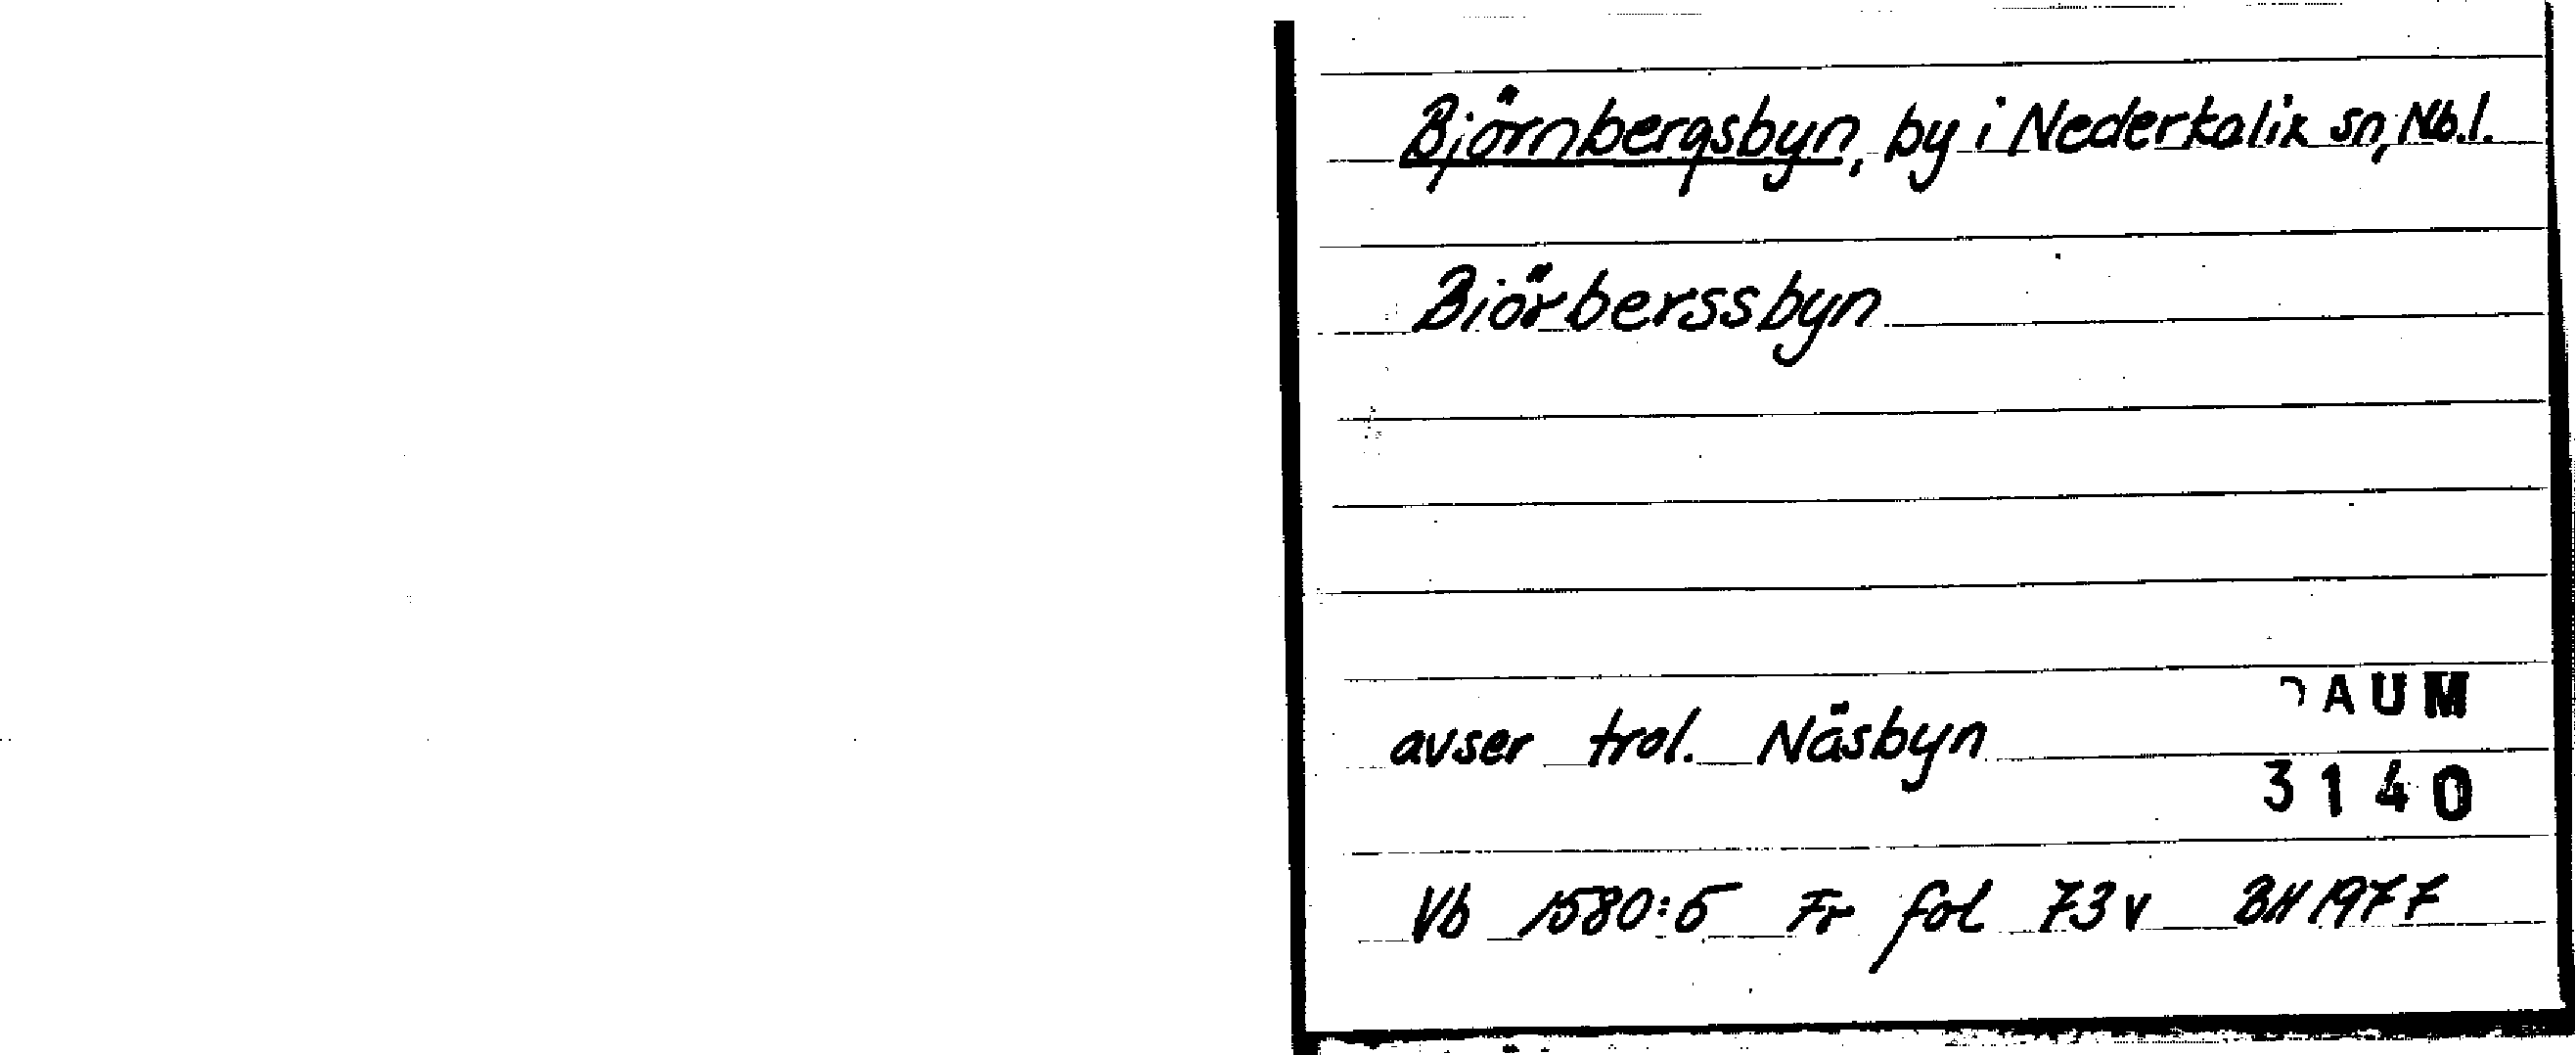 Björnbergsbyn, by i Nederkalix sn, Nb.l.
Biörberssbyn
DAUM
avser trol. Näsbyn
3140
Vb 1580:5 Fr fol 73v BH 1977